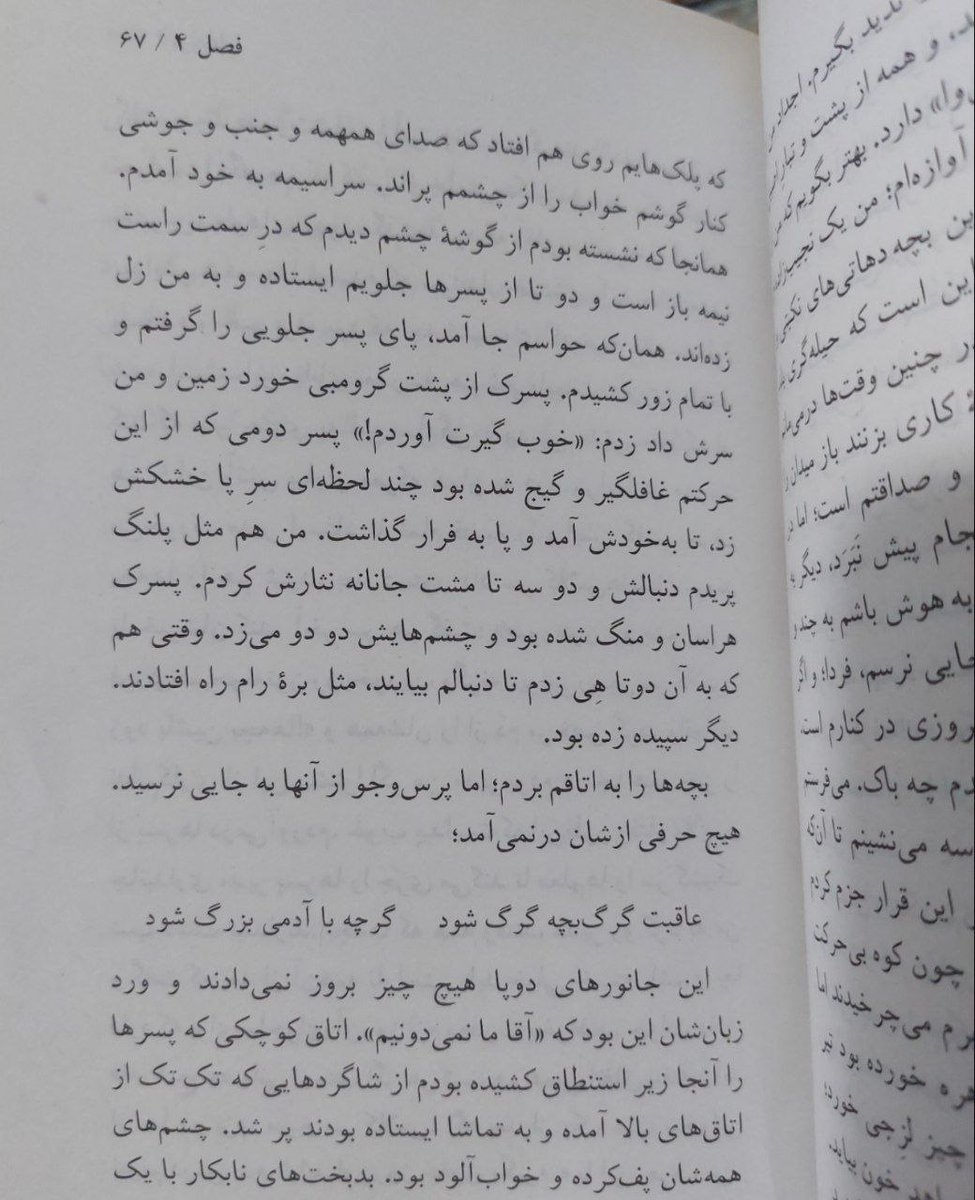 فصل ۴ / ۶۷
که پلک‌هایم روی هم افتاد که صدای همهمه و جنب و جوشی
کنار گوشم خواب را از چشمم پراند. سراسیمه به خود آمدم.
همانجا که نشسته بودم از گوشهٔ چشم دیدم که درِ سمت راست
نیمه باز است و دو تا از پسرها جلویم ایستاده و به من زل
زده‌اند. همان‌که حواسم جا آمد، پای پسر جلویی را گرفتم و
با تمام زور کشیدم. پسرک از پشت گرومبی خورد زمین و من
سرش داد زدم: «خوب گیرت آوردم!» پسر دومی که از این
حرکتم غافلگیر و گیج شده بود چند لحظه‌ای سرِ پا خشکش
زد، تا به‌خودش آمد و پا به فرار گذاشت. من هم مثل پلنگ
پریدم دنبالش و دو سه تا مشت جانانه نثارش کردم. پسرک
هراسان و منگ شده بود و چشم‌هایش دو دو می‌زد. وقتی هم
که به آن دوتا هِی زدم تا دنبالم بیایند، مثل برهٔ رام راه افتادند.
دیگر سپیده زده بود.
بچه‌ها را به اتاقم بردم؛ اما پرس‌وجو از آنها به جایی نرسید.
هیچ حرفی ازشان درنمی‌آمد؛
عاقبت گرگ‌بچه گرگ شود گرچه با آدمی بزرگ شود
این جانورهای دوپا هیچ چیز بروز نمی‌دادند و ورد
زبان‌شان این بود که «آقا ما نمی‌دونیم». اتاق کوچکی که پسرها
را آنجا زیر استنطاق کشیده بودم از شاگردهایی که تک تک از
اتاق‌های بالا آمده و به تماشا ایستاده بودند پر شد. چشم‌های
همه‌شان پف‌کرده و خواب‌آلود بود. بدبخت‌های نابکار با یک
بدید بگیرم. اجداد من
و همه از پشت و تبار
دارد. بهتر بگویم که من
آوازه‌ام؛ من یک نجیب‌زاده
بچه دهاتی‌های نکبتی
این است که حیله‌گری
چنین وقت‌ها درمی‌مانم
کاری بزنند باز میدان را
و صداقتم است؛ اما در
پیش نَبَرَد، دیگر
به هوش باشم به چند و
جایی نرسم، فردا؛ و اگر
روزی در کنارم است
چه باک. می‌فرستم
می‌نشینم تا آن‌که
این قرار جزم کردم
چون کوه بی‌حرکت
می‌چرخیدند اما
خورده بود تیر
چیز لزجی خورد
خون بیاید.